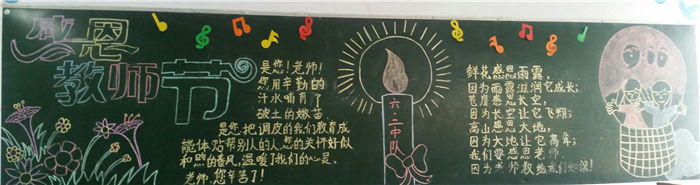 感恩
教师节
是您！老师！
您用辛勤的
汗水哺育了
破土的嫩苗
是您把调皮的我们教育成
能体贴帮别人的人您的关怀好似
和煦的春风，温暖了我们的心灵。
老师，您辛苦了！
六·二中队
鲜花感恩雨露，
因为雨露滋润它成长；
苍鹰感恩长空，
因为长空让它飞翔；
高山感恩大地，
因为大地让它高耸；
我们要感恩老师，
因为老师教给我们知识！